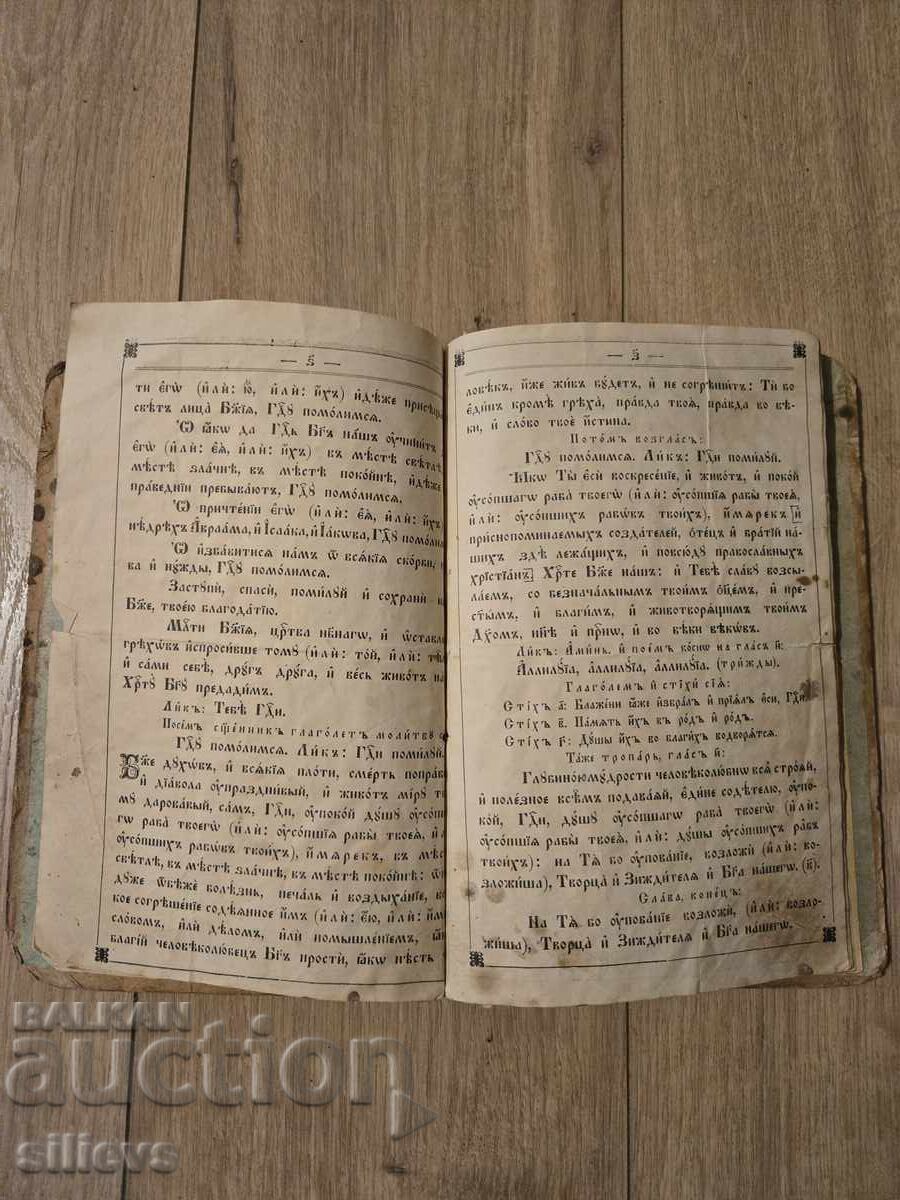 — ѕ҃ —
ти є҆гѡ̀ (и҆лѝ: ю҆̀, и҆лѝ: и҆̀хъ) и҆дѣ́же
свѣ́тъ лица̀ Бж҃їѧ, Гдⷭ҇ꙋ помо́лимсѧ.
Ѽ ꙗ҆́кѡ да Гдⷭ҇ь Бг҃ъ на́шъ ᲂу҆чини́тъ
є҆го̀ (и҆лѝ: є҆ѧ̀, и҆лѝ: и҆́хъ) въ мѣ́стѣ свѣ́тлѣ
мѣ́стѣ зла́чнѣ, въ мѣ́стѣ поко́йнѣ, и҆дѣ́же
пра́веднїи пребыва́ютъ, Гдⷭ҇ꙋ помо́лимсѧ.
Ѽ причте́нїи є҆гѡ̀ (и҆лѝ: є҆ѧ̀, и҆лѝ: и҆́хъ
нѣ́дрѣхъ А҆враа́ма, и҆ І҆саа́ка, и҆ І҆а́кѡва, Гдⷭ҇ꙋ
Ѽ и҆зба́витисѧ на́мъ ѿ всѧ́кїѧ ско́рби,
ва и҆ нꙋ́жды, Гдⷭ҇ꙋ помо́лимсѧ.
Застꙋпѝ, спасѝ, поми́лꙋй и҆ сохранѝ
Бж҃е, твое́ю благода́тїю.
Млⷭ҇ти Бж҃їѧ, црⷭ҇тва нбⷭ҇нагѡ, и҆ ѡ҆ставле
грѣхѡ́въ и҆спроси́вше томꙋ̀ (и҆лѝ: то́й, и҆лѝ:
и҆ са́ми себѐ, дрꙋ́гъ дрꙋ́га, и҆ ве́сь живо́тъ
Хрⷭ҇тꙋ̀ Бг҃ꙋ предади́мъ.
Ли́къ: Тебѣ̀ Гдⷭ҇и.
Посе́мъ сщ҃е́нникъ глаго́летъ моли́твꙋ
Гдⷭ҇ꙋ помо́лимсѧ. Ли́къ: Гдⷭ҇и поми́лꙋй.
Бж҃е дꙋхѡ́въ, и҆ всѧ́кїѧ пло́ти, сме́рть попра
и҆ дїа́вола ᲂу҆празднивы́й, и҆ живо́тъ мі́рꙋ
мꙋ̀ дарова́вый, са́мъ, Гдⷭ҇и, ᲂу҆поко́й дꙋ́шꙋ
гѡ раба̀ твоегѡ̀ (и҆лѝ: ᲂу҆со́пшїѧ рабы̀ твоеѧ̀,
ᲂу҆со́пшихъ рабѡ́въ твои́хъ), и҆́мѧрекъ, въ
свѣ́тлѣ, въ мѣ́стѣ зла́чнѣ, въ мѣ́стѣ поко́йнѣ:
дꙋ́же ѿбѣжѐ болѣ́знь, печа́ль и҆ воздыха́нїе,
кое согрѣше́нїе содѣ́янное и҆́мъ (и҆лѝ: є҆́ю, и҆лѝ:
сло́вомъ, и҆лѝ дѣ́ломъ, и҆лѝ помышле́нїемъ,
благі́й человѣколю́бецъ Бг҃ъ простѝ, ꙗ҆́кѡ нѣ́сть
— з҃ —
ловѣ́къ, и҆́же жи́въ бꙋ́детъ, и҆ не согрѣши́тъ: Ты́ бо
є҆ди́нъ кромѣ̀ грѣха̀, пра́вда твоѧ̀, пра́вда во вѣ́
ки, и҆ сло́во твоѐ и҆́стина.
Пото́мъ возгла́съ:
Гдⷭ҇ꙋ помо́лимсѧ. Ли́къ: Гдⷭ҇и поми́лꙋй.
Ꙗ҆́кѡ Ты̀ є҆сѝ воскресе́нїе, и҆ живо́тъ, и҆ поко́й
ᲂу҆со́пшагѡ раба̀ твоегѡ̀ (и҆лѝ: ᲂу҆со́пшїѧ рабы̀ твоеѧ̀,
и҆лѝ: ᲂу҆со́пшихъ рабѡ́въ твои́хъ), и҆́мѧрекъ [и҆
приснопомина́емыхъ созда́телей, ѻ҆тє́цъ и҆ бра́тїй на́
шихъ здѣ̀ лежа́щихъ, и҆ повсю́дꙋ правосла́вныхъ
хрїстїа́нъ] Хрⷭ҇тѐ Бж҃е на́шъ: и҆ Тебѣ̀ сла́вꙋ возсы
ла́емъ, со безнача́льнымъ твои́мъ Ѻ҆ц҃е́мъ, и҆ прес
ты́мъ, и҆ благи́мъ, и҆ животворѧ́щимъ твои́мъ
Дх҃омъ, ны́нѣ и҆ при́снѡ, и҆ во вѣ́ки вѣкѡ́въ.
Ли́къ: А҆ми́нь. И҆ пое́мъ ко́снѡ на гла́съ и҃:
А҆ллилꙋ́їа, а҆ллилꙋ́їа, а҆ллилꙋ́їа, (три́жды).
Глаго́лемъ и҆ стїхѝ сїѧ̀:
Сті́хъ а҃: Блаже́ни ꙗ҆̀же и҆збра́лъ и҆ прїѧ́лъ є҆сѝ, Гдⷭ҇и.
Сті́хъ в҃: Па́мѧть и҆́хъ въ ро́дъ и҆ ро́дъ.
Сті́хъ г҃: Дꙋ́шы и҆́хъ во благи́хъ водворѧ́тсѧ.
Та́же тропа́рь, гла́съ и҃:
Глꙋбино́ю мꙋ́дрости человѣколю́бнѡ всѧ̑ стро́ѧй,
и҆ поле́зное всѣ́мъ подава́ѧй, є҆ди́не содѣ́телю, ᲂу҆по
ко́й, Гдⷭ҇и, дꙋ́шꙋ ᲂу҆со́пшагѡ раба̀ твоегѡ̀ (и҆лѝ:
ᲂу҆со́пшїѧ рабы̀ твоеѧ̀, и҆лѝ: дꙋ́шы ᲂу҆со́пшихъ ра́бъ
твои́хъ): на Тѧ̀ бо ᲂу҆пова́нїе, возложѝ (и҆лѝ: во
зложи́ша), Творца̀ и҆ Зижди́телѧ и҆ Бг҃а на́шегѡ. (в҃).
Сла́ва, коне́цъ:
На Тѧ̀ бо ᲂу҆пова́нїе возложѝ, (и҆лѝ: возло
жи́ша), Творца̀ и҆ Зижди́телѧ и҆ Бг҃а на́шегѡ.
BALKAN
auction
silievs